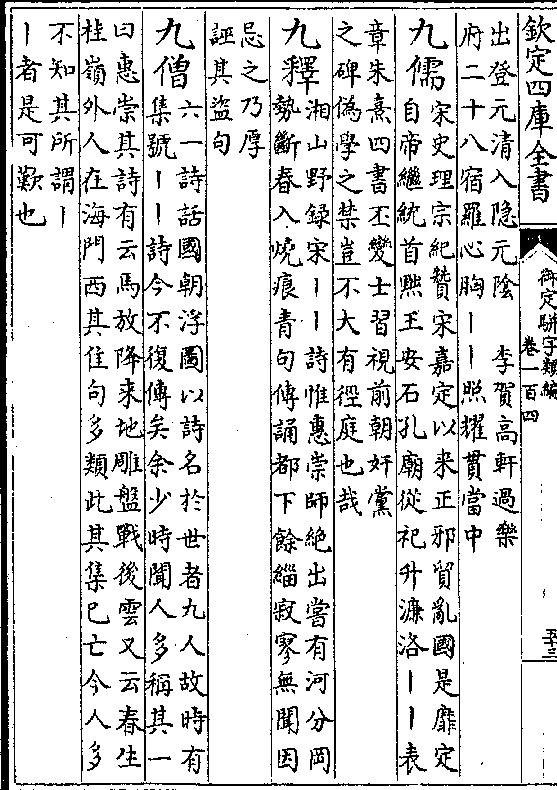 欽定四庫全書
御定駢字類編
卷一百四
五十三
出登元清入隐元陰　李賀高軒過樂
府二十八宿羅心胸丨丨照耀貫當中
九儒
宋史理宗紀贊宋嘉定以来正邪貿亂國是靡定
自帝繼統首黜王安石孔廟從祀升濂洛丨丨表
章朱熹四書丕變士習視前朝奸黨
之碑偽學之禁豈不大有徑庭也哉
九釋
湘山野録宋丨丨詩惟惠崇師絶出嘗有河分岡
勢斷春入燒痕青句傳誦都下餘緇寂寥無聞因
忌之乃厚
誣其盗句
九僧
六一詩話國朝浮圖以詩名於世者九人故時有
集號丨丨詩今不復傳矣余少時聞人多稱其一
曰惠崇其詩有云馬放降来地雕盤戰後雲又云春生
桂嶺外人在海門西其佳句多類此其集已亡今人多
不知其所謂丨
丨者是可歎也